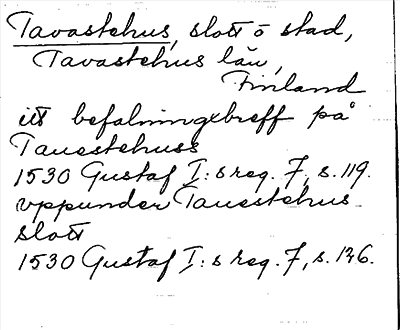 Tavastehus, slott o stad,
Tavastehus län,
Finland
itt befalningxbreff på
Tauestehuss
1530 Gustaf I:s reg. 7, s. 119.
vppunder Tauestehus
slott
1530 Gustaf I:s reg. 7, s. 136.